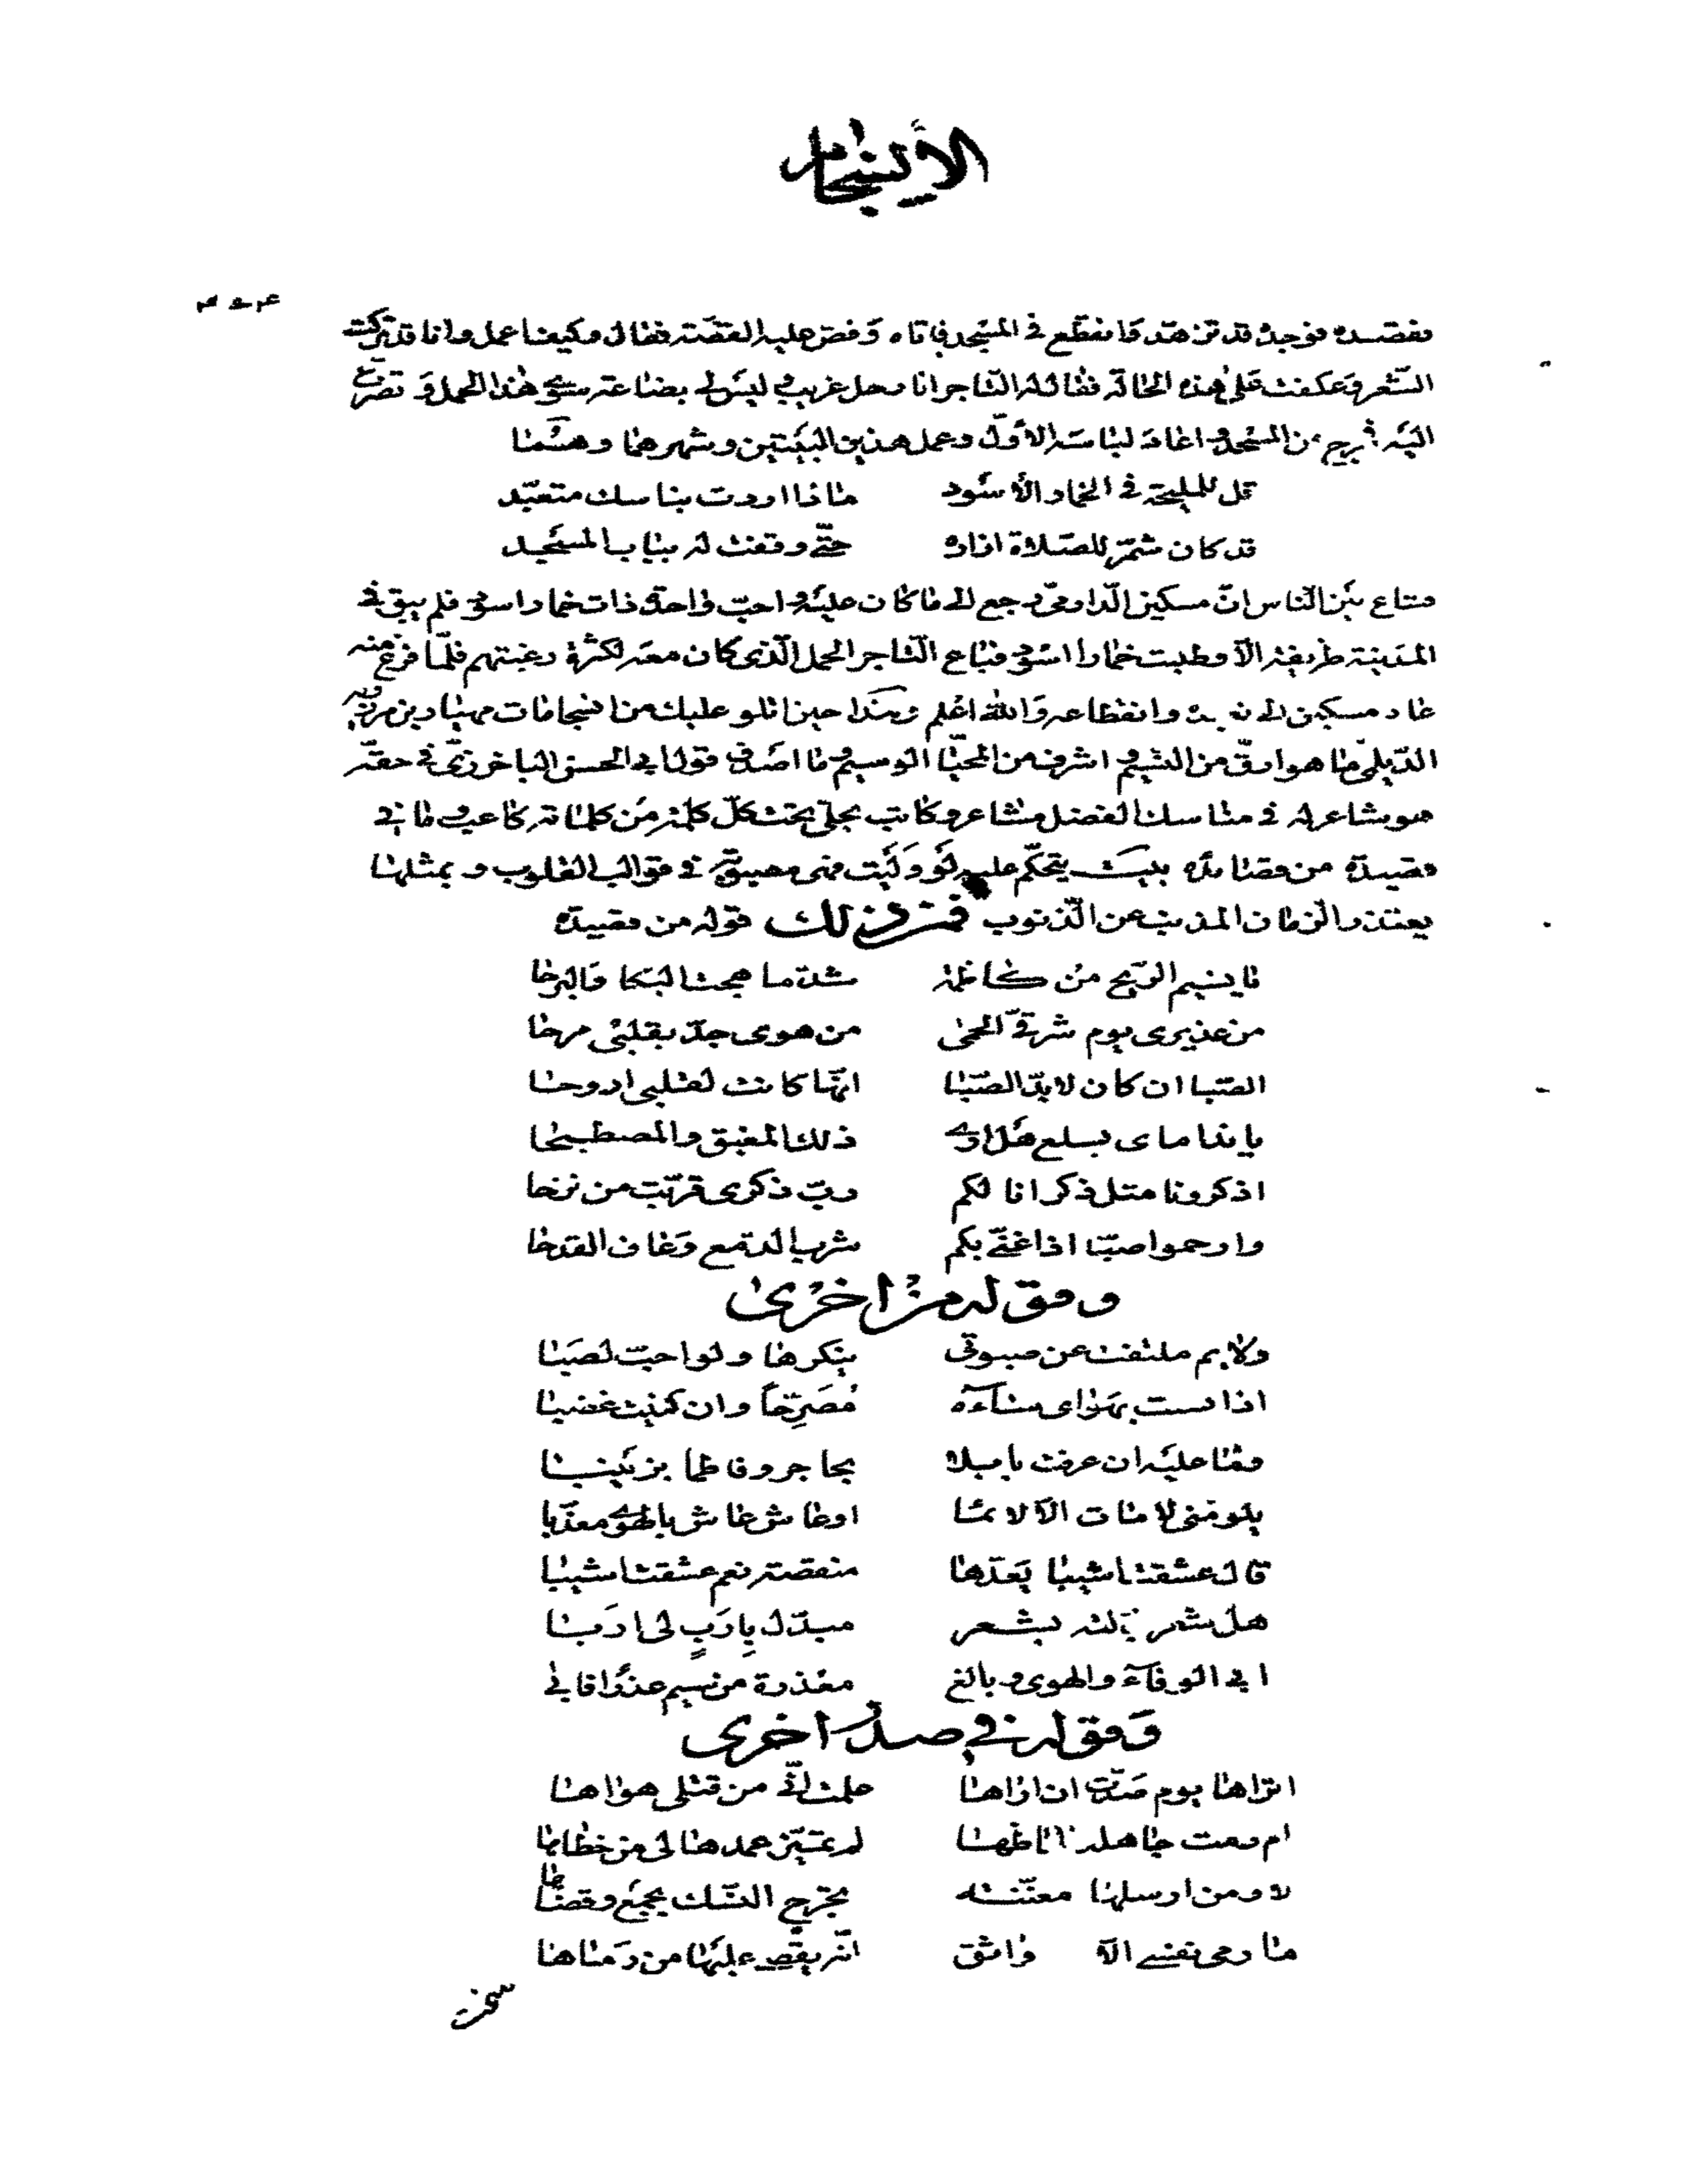 الأنسجام
فقصده فوجده قد تزهد وانقطع في المسجد فاتاه وقص عليه القصة فقال وكيف اعمل وانا قد تركت
الشعر وعكفت على هذه الحالة فقال له التاجر انا رجل غريب وليس لي بضاعة سوى هذا الحمل وتضرع
اليه فخرج من المسجد واعاد لباسه الاول وعمل هذين البيتين وشهرهما وهما
قل للمليحة في الخمار الأسود ماذا اردت بناسك متعبد
قد كان شمر للصلاة ازاره حتى وقفت له بباب المسجد
فشاع بين الناس ان مسكين الدارمي رجع الى ما كان عليه واحب واحدة ذات خمار اسود فلم يبق في
المدينة ظريفة الا وطلبت خمارا اسود فباع التاجر الحمل الذي كان معه لكثرة رغبتهم فلما فرغ منه
عاد مسكين الى تعبده وانقطاعه والله اعلم وهذا حين اتلو عليك من انسجامات مهيار بن مرزويه
الديلمي ما هو ارق من النسيم واشرف من المحيا الوسيم وما اصدق قول ابي الحسن الباخرزي في حقه
هو شاعر له في مناسك الفضل مشاعر وكاتب تجلى تحت كل كلمة من كلماته كاعب وما في
قصيدة من قصائده بيت يتحكم عليه لو وليت فهي مصبوبة في قوالب القلوب وبمثلها
يعتذر الزمان المذنب عن الذنوب فمن ذلك قوله من قصيدة
يا نسيم الريح من كاظمة شد ما هجت البكا والبرحا
من عذيري يوم شرقي الحمى من هوى جد بقلبي مرحا
الصبا ان كان لا بد الصبا انها كانت لقلبي اروحا
يا نداماي بسلع هل ارى ذلك المغبق والمصطبحا
اذكرونا مثل ذكرانا لكم رب ذكرى قربت من نزحا
وارحموا صبا اذا غنى بكم شرب الدمع وعاف القدحا
وقوله من اخرى
ولايم ملتفت عن صبوتي ينكرها ولو احب لصبا
اذا نسبت بهواي ساءه مصرحا وان كنيت غضبا
وما عليه ان عرفت بابلا بحاجر وفاطما بزينبا
يلومني لا مات الا لائما او عاش عاش بالهوى معذبا
قال عشقت اشيبا يعدها منقصة نعم عشقت اشيبا
هل شعر بدلته بشعر مبدل يا رب لي اربا
ابى الوفاء والهوى وبالغ معذرة من سيم عذرا فابى
وقوله في صدر اخرى
اتراها يوم صدت ان اراها علمت اني من قتلى هواها
ام رمت جاهلة الحاظها لم تميز عمدها لي من خطاها
لا ومن ارسلها مفتنة تحرج النسك بجمع وقضاها
ما رمى نفسي الا واثق انه يقص عليها من دماها